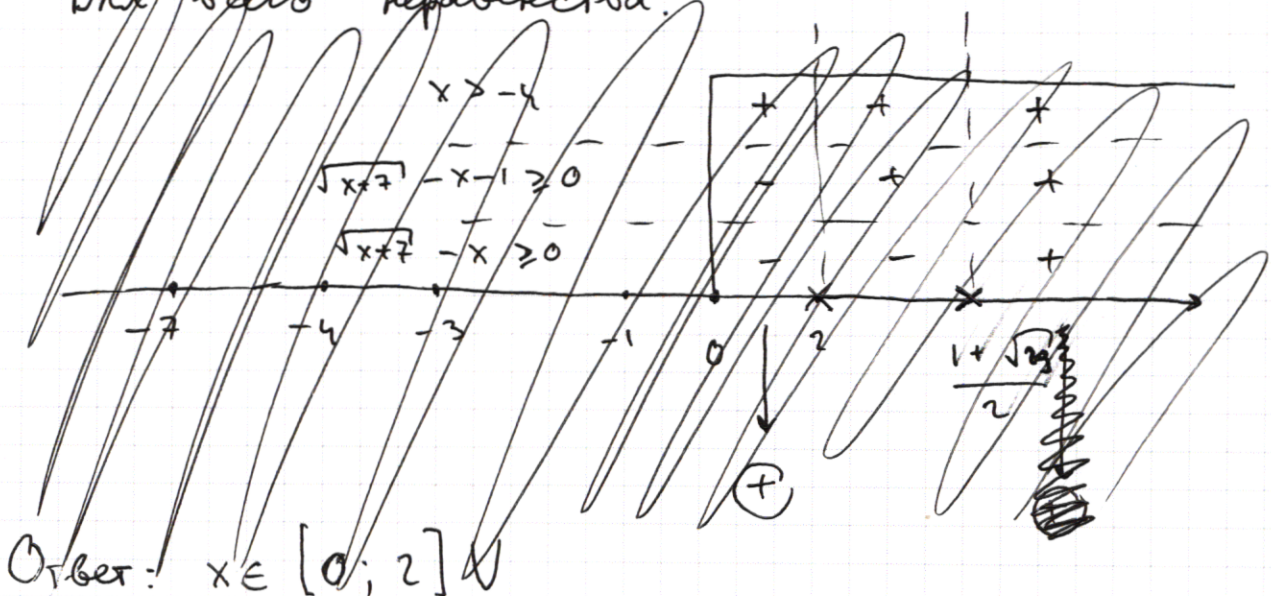 для всего неравенства.
x > -4
+ + +
√(x+7) - x - 1 ≥ 0
- + +
√(x+7) - x ≥ 0
- - +
-7 -4 -3 -1 0 2 (1+√29)/2
+
Ответ: x ∈ [0; 2] ∪